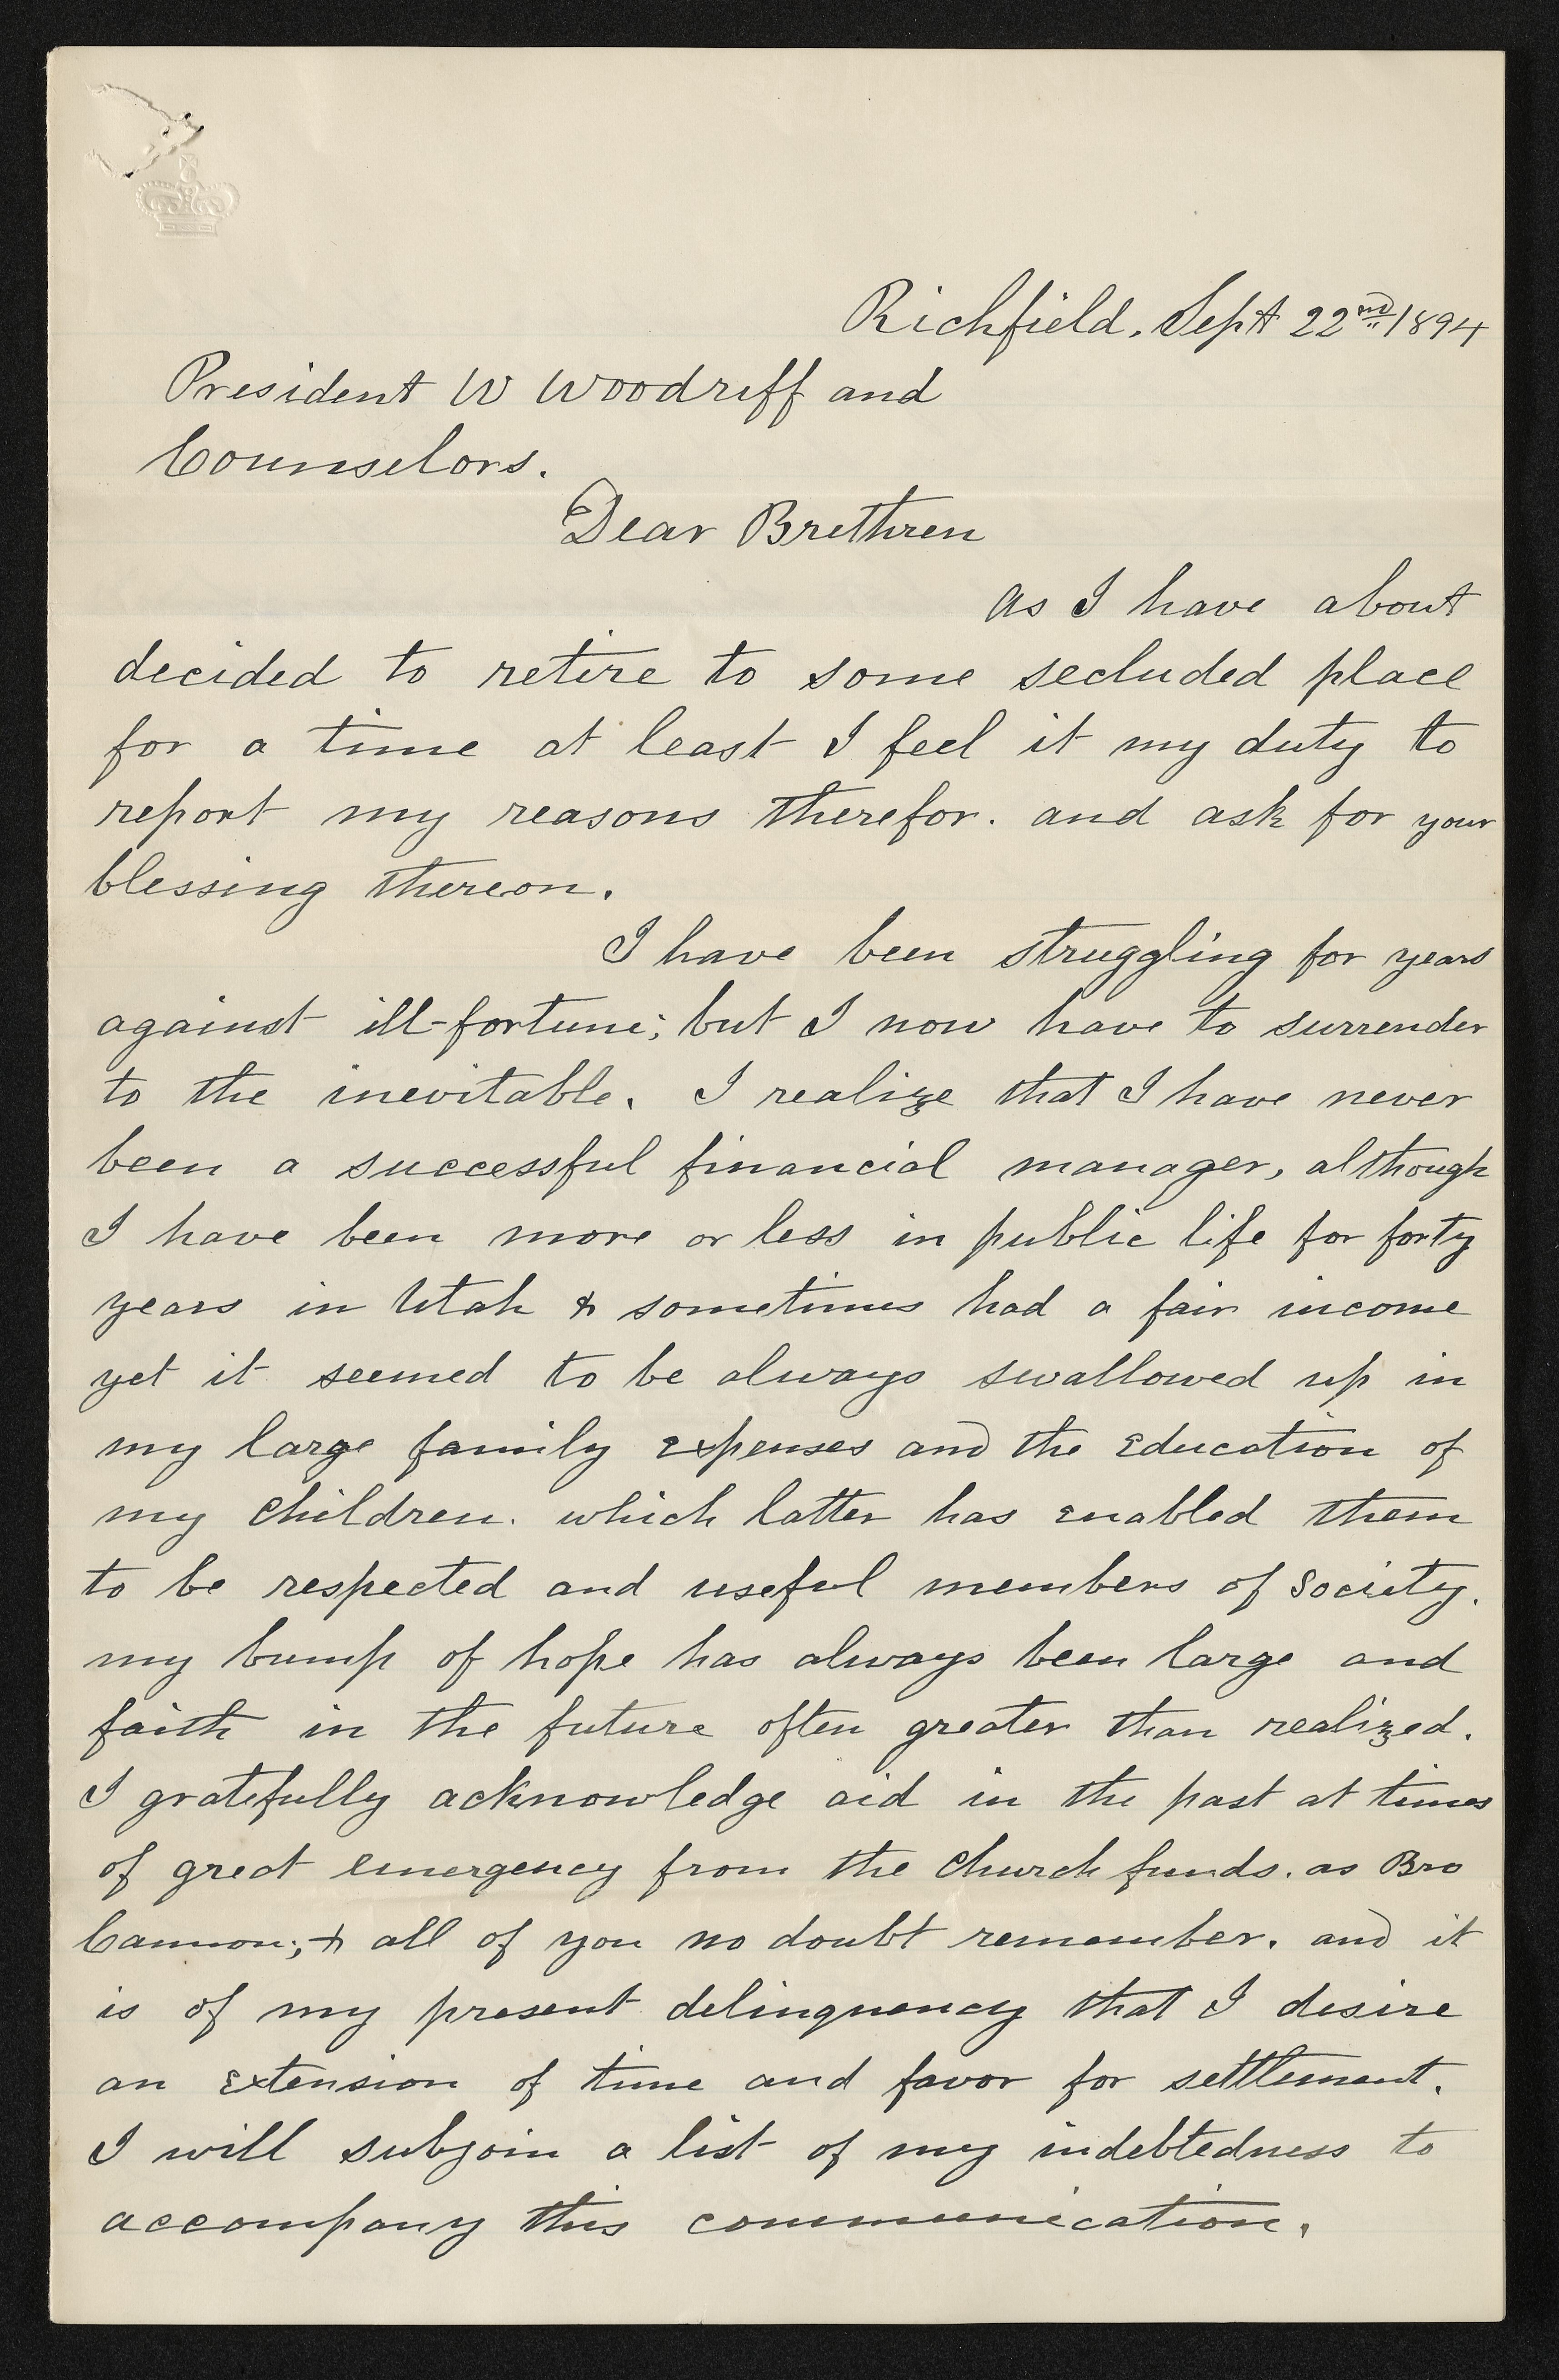 Richfield, Sept 22nd 1894
President W Woodruff and
Counselors.
Dear Brethren
As I have about
decided to retire to some secluded place
for a time at least I feel it my duty to
report my reasons therefor. and ask for your
blessing thereon.
I have been struggling for years
against ill-fortune; but I now have to surrender
to the inevitable. I realize that I have never
been a successful financial manager, although
I have been more or less in public life for forty
years in Utah & sometimes had a fair income
yet it seemed to be always swallowed up in
my large family expenses and the education of
my children. which latter has enabled them
to be respected and useful members of society.
my bump of hope has always been large and
faith in the future often greater than realized.
I gratefully acknowledge aid in the past at times
of great emergency from the church funds. as Bro
Cannon; & all of you no doubt remember. and it
is of my present delinquency that I desire
an extension of time and favor for settlement.
I will subjoin a list of my indebtedness to
accompany this communication.